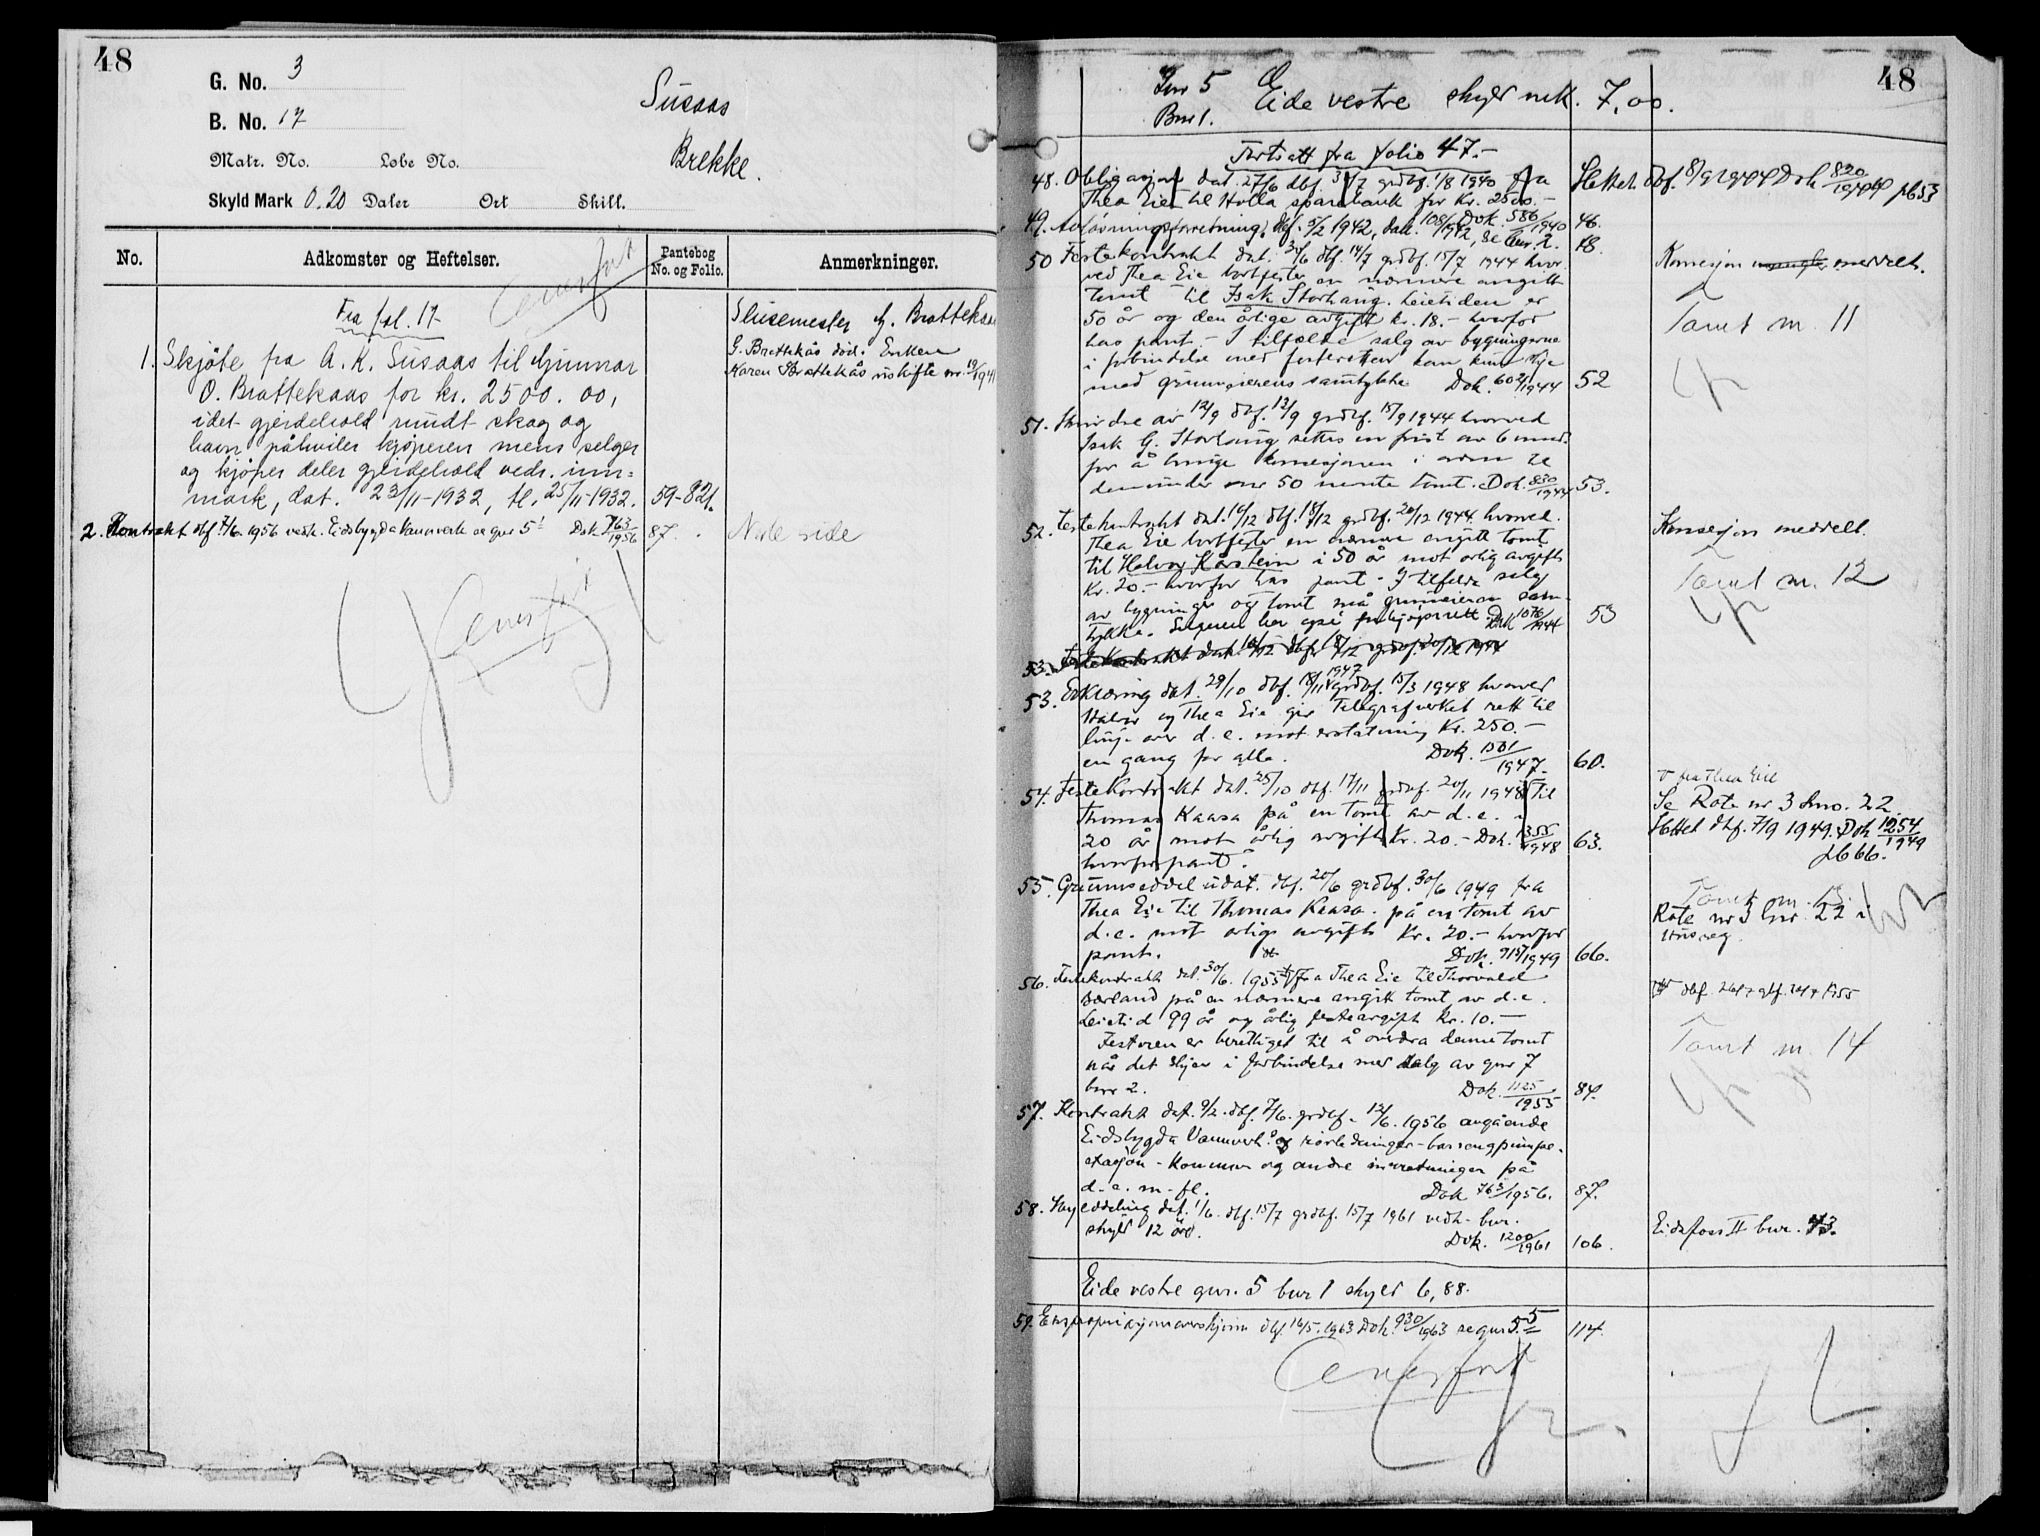 48
G. No. 3
B. No. 17
Susaas
Brekke.
Matr. No. Løbe No.
Skyld Mark 0.20 Daler Ort Skill.
No. Adkomster og Heftelser. Pantebog No. og Folio. Anmerkninger.
Fra fol. 17
1. Skjøte fra A. K. Susaas til Gunnar
O. Brattekaas for kr. 2500.00,
idet gjerdehold rundt skog og
havn påhviler kjøperen mens selger
og kjøper deler gjerdehold vedr. inn=
mark, dat. 23/11-1932, tl. 25/11-1932. 59-821.
Slusemester G. Brattekaas
G. Brattekås død. Enken
Karen Brattekås uskifte nr. 19/1941
2. Kontrakt dbf 7/6 1956 vedk. Eidsbygda Vannverk se gnr 5 Dok 763/1956 87.
Neste side
48
Gnr 5 Eide vestre skyld mk. 7,00.
Bnr 1.
Fortsatt fra folio 47.-
48. Obligasjon dat. 27/6 dbf. 31/7 grdbf. 1/8 1940 fra
Thea Eie til Holla sparebank for kr. 2500.-
Dok. 586/1940 46.
Slettet dbf. 8/9 1944 Dok 820/1944 pb 53
49. Avløsningsforretning, dbf. 5/2 1942, dok. 108/1942, se bnr. 2. 48.
50 Festekontrakt dat. 30/6 dbf. 14/7 grdbf. 15/7 1944 hvor
ved Thea Eie bortfester en nærmere angitt
tomt til Isak Storhaug. Leietiden er
50 år og den årlige avgift kr. 18.- hvorfor
has pant.- I tilfelde salg av bygningerne
i forbindelse med festeretten kan kun skje
med grunneierens samtykke Dok. 602/1944 52
Konsesjon meddelt.
Tomt nr. 11
51. Skrivelse av 12/9 dbf. 13/9 grdbf. 15/9 1944 hvorved
Isak G. Storhaug settes en frist av 6 mnd.
for å bringe konsesjonen i orden til
den under nr 50 nevnte tomt. Dok. 830/1944 53.
52. Festekontrakt dat. 16/12 dbf. 18/12 grdbf. 20/12 1944 hvorved
Thea Eie bortfester en nærmere angitt tomt
til Halvor Kåstein i 50 år mot årlig avgift
Kr. 20.- hvorfor has pant.- I tilfelde salg
av bygninger og tomt må grunneieren sam-
tykke. Selgeren har også forkjøpsrett. Dok 1076/1944 53
Konsesjon meddelt.
Tomt nr. 12
53. Festekontrakt dat. 16/12 dbf. 18/12 grdbf. 20/12 1944
53. Erklæring dat. 29/10 dbf. 18/11 1947 grdbf. 15/3 1948 hvorved
Halvor og Thea Eie gir Telegrafverket rett til
linje over d. e. mot erstatning Kr. 250.-
en gang for alle. Dok. 1501/1947. 60.
54. Festekontrakt dat. 25/10 dbf. 17/11 grdbf. 20/11 1948 til
Thomas Kaasa på en tomt av d. e. i
20 år mot årlig avgift Kr. 20.- Dok. 1355/1948 63.
hvorfor pant.
fra Thea Eie
Se Rote nr 3 Hno. 22
Slettet dbf. 7/9 1949. Dok 1254/1949
pb 66.
55. Grunnseddel udat. dbf. 20/6 grdbf. 30/6 1949 fra
Thea Eie til Thomas Kaasa på en tomt av
d. e. mot årlig avgift Kr. 20.- hvorfor
pant. Dok. 918/1949 66.
Tomt nr. 13.
Rote nr 3 hnr. 22 i
Husreg.
56. Festekontrakt dat. 30/6. 1955 fra Thea Eie til Thorvald
Børland på en nærmere angitt tomt av d. e.
Leietid 99 år og årlig festeavgift Kr. 10.-
Festeren er berettiget til å overdra denne tomt
når det skjer i forbindelse med salg av gnr 7
bnr 2. Dok. 1125/1955 84.
Tomt nr. 14
57. Kontrakt dat. 9/2. dbf. 7/6. grdbf. 12/6. 1956 angående
Eidsbygda Vannverk og rørledninger - bassengpumpe-
stasjon - kummer og andre innretninger på
d. e. m. fl. Dok 763/1956. 87.
58. Skylddeling dat. 1/6. dbf. 15/7 grdbf. 15/7 1961 vedk. bnr.
skyld 12 øre. Dok. 1200/1961 106.
Eidsfoss II bnr. 43.
Eide vestre gnr. 5 bnr 1 skyld 6,88.
59. Ekspropriasjonsoverskjønn dbf. 16/5. 1963 Dok. 930/1963 se gnr 5. 5 114.